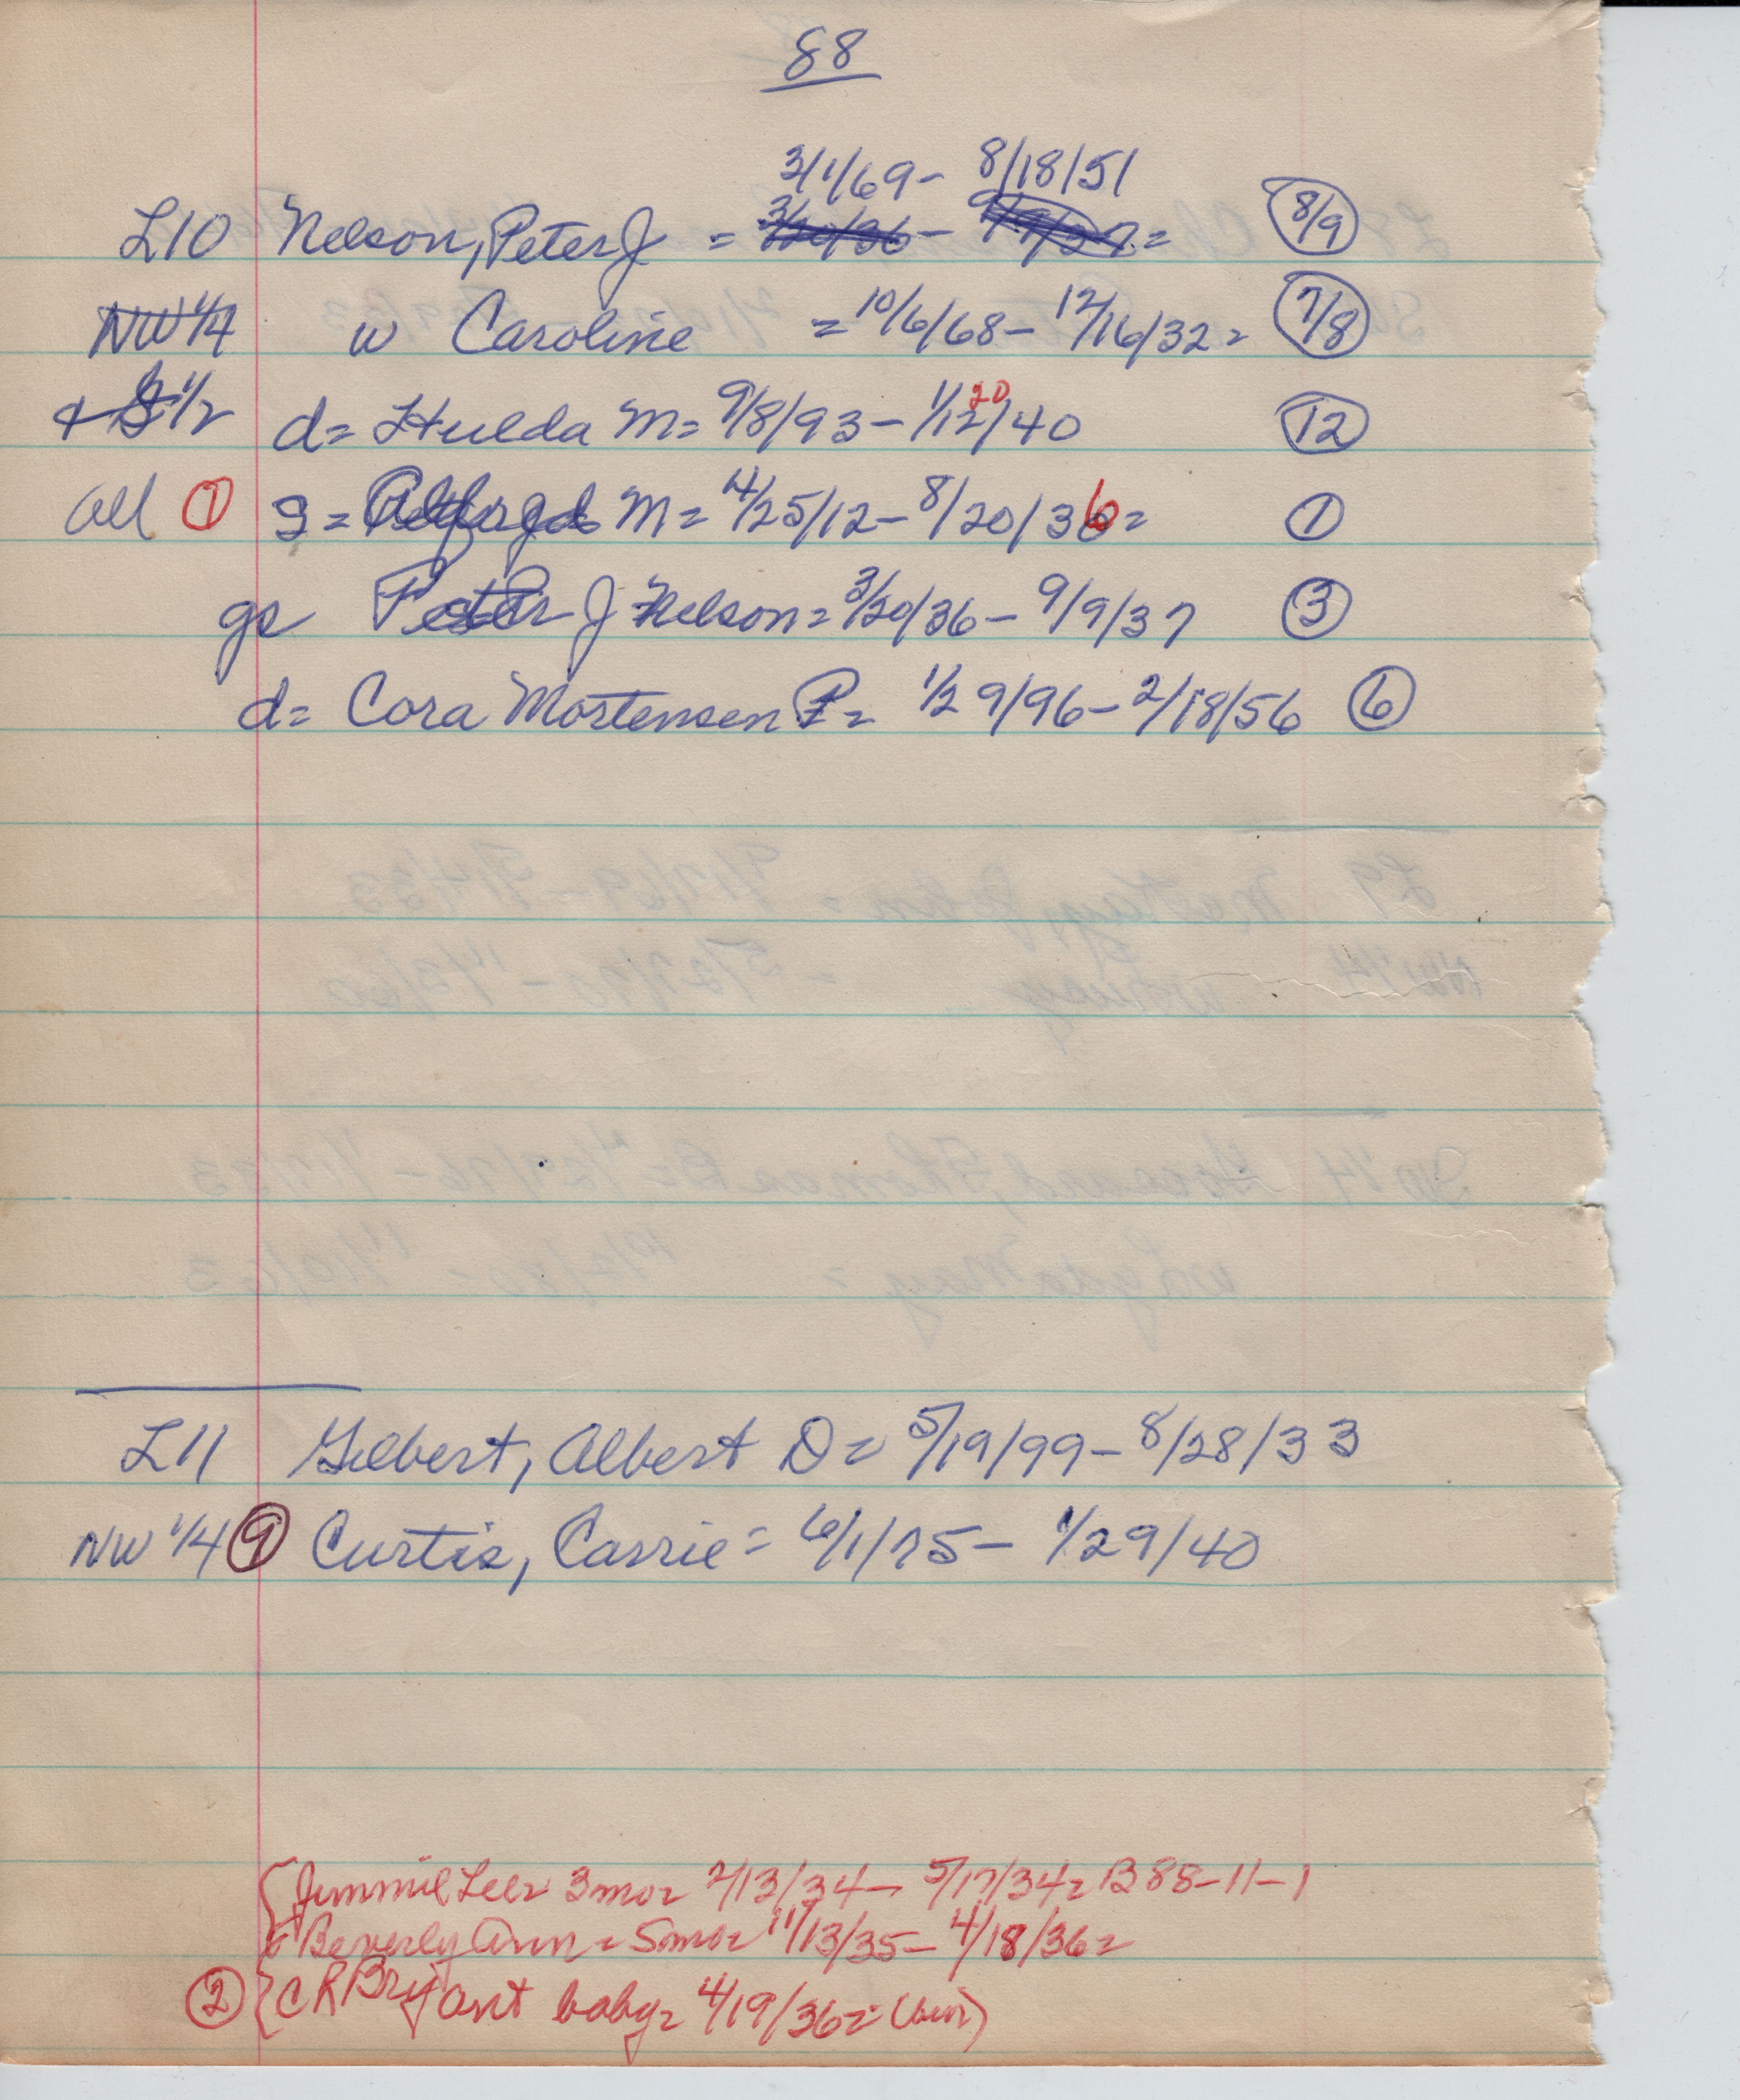 88
3/1/69 - 8/18/51
L10 Nelson, Peter J = 3/20/36 - 9/9/37 = 8/9
NW 1/4 w Caroline = 10/6/68 - 12/16/32 = 7/8
+ S 1/2 d = Hulda M = 9/8/93 - 1/12/40 20 12
all 1 s = M = 4/25/12 - 8/20/36 = 1
gs Peter J Nelson = 3/20/36 - 9/9/37 3
d = Cora Mortensen P = 1/29/96 - 2/18/56 6
L11 Gilbert, Albert D = 5/19/99 - 8/28/33
NW 1/4 9 Curtis, Carrie = 6/1/75 - 1/29/40
{ Jimmie Lee = 3mo = 2/13/34 - 5/17/34 = B 88-11-1
+ Beverly Ann = 5mo = 11/13/35 - 4/18/36 =
2 { C R Bryant baby = 4/19/36 = (bur)